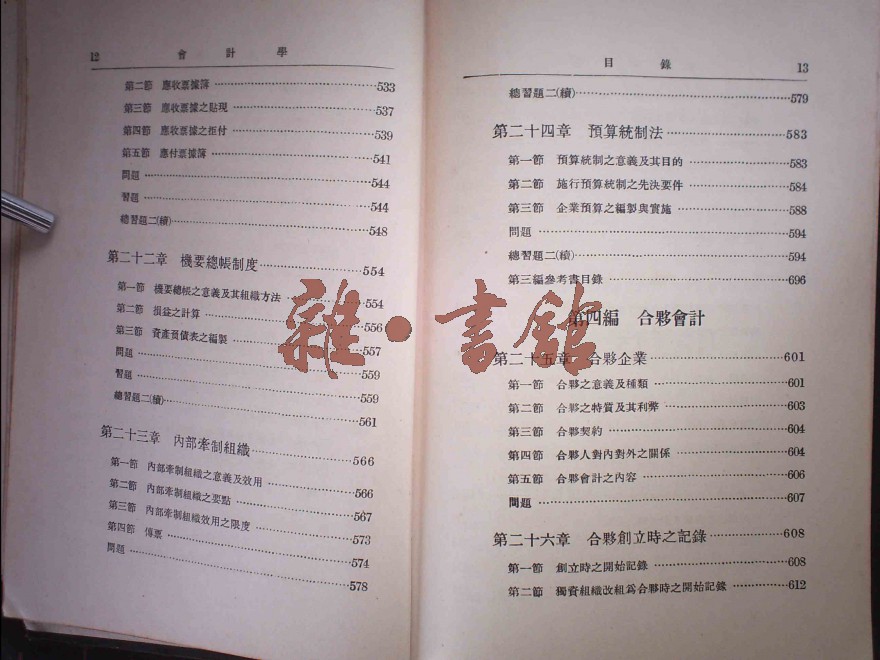 12 會計學
第二節 應收票據簿 533
第三節 應收票據之貼現 537
第四節 應收票據之拒付 539
第五節 應付票據簿 541
問題 544
習題 544
總習題二(續) 548
第二十二章 機要總帳制度 554
第一節 機要總帳之意義及其組織方法 554
第二節 損益之計算 556
第三節 資產負債表之編製 557
問題 559
習題 559
總習題二(續) 561
第二十三章 內部牽制組織 566
第一節 內部牽制組織之意義及效用 566
第二節 內部牽制組織之要點 567
第三節 內部牽制組織效用之限度 573
第四節 傳票 574
問題 578
目錄 13
總習題二(續) 579
第二十四章 預算統制法 583
第一節 預算統制之意義及其目的 583
第二節 施行預算統制之先決要件 584
第三節 企業預算之編製與實施 588
問題 594
總習題二(續) 594
第三編參考書目錄 696
第四編 合夥會計
第二十五章 合夥企業 601
第一節 合夥之意義及種類 601
第二節 合夥之特質及其利弊 603
第三節 合夥契約 604
第四節 合夥人對內對外之關係 604
第五節 合夥會計之內容 606
問題 607
第二十六章 合夥創立時之記錄 608
第一節 創立時之開始記錄 608
第二節 獨資組織改組爲合夥時之開始記錄 612
雜·書館